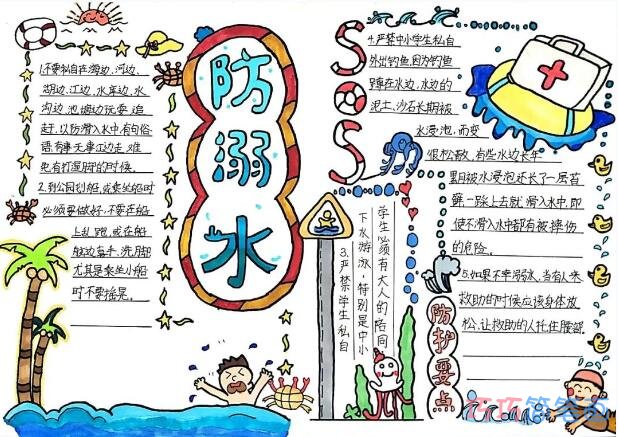 防溺水
1.不要私自在海边、河边、
湖边、江边、水库边、水
沟边、池塘边玩耍、追
赶,以防滑入水中有句俗
语:有事无事江边走,难
免有打湿脚的时候。
2.到公园划船,或乘坐船时
必须要做好,不要在船
上乱跑,或在船
舷边
洗手、洗脚
尤其是乘坐小船
时不要摇晃。
3.严禁学生私自
下水游泳,特别是中小
学生必须有大人的陪同
SOS
4.严禁中小学生私自
外出钓鱼,因为钓鱼
蹲在水边,水边的
泥土、沙石长期被
水浸泡,而变
很松散,有些水边长年
累月被水浸泡还长了一层苔
藓,一踩上去就滑入水中,即
使不滑入水中都有被摔伤
的危险。
防护要点
5.如果不幸溺水,当有人来
救助的时候应该身体放
松,让救助的人托住腰部
巧巧简笔画